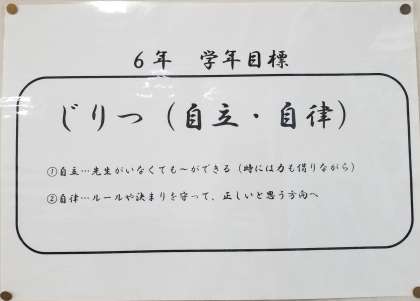 6年　学年目標
じりつ（自立・自律）
①自立…先生がいなくても～ができる（時には力も借りながら）
②自律…ルールや決まりを守って、正しいと思う方向へ